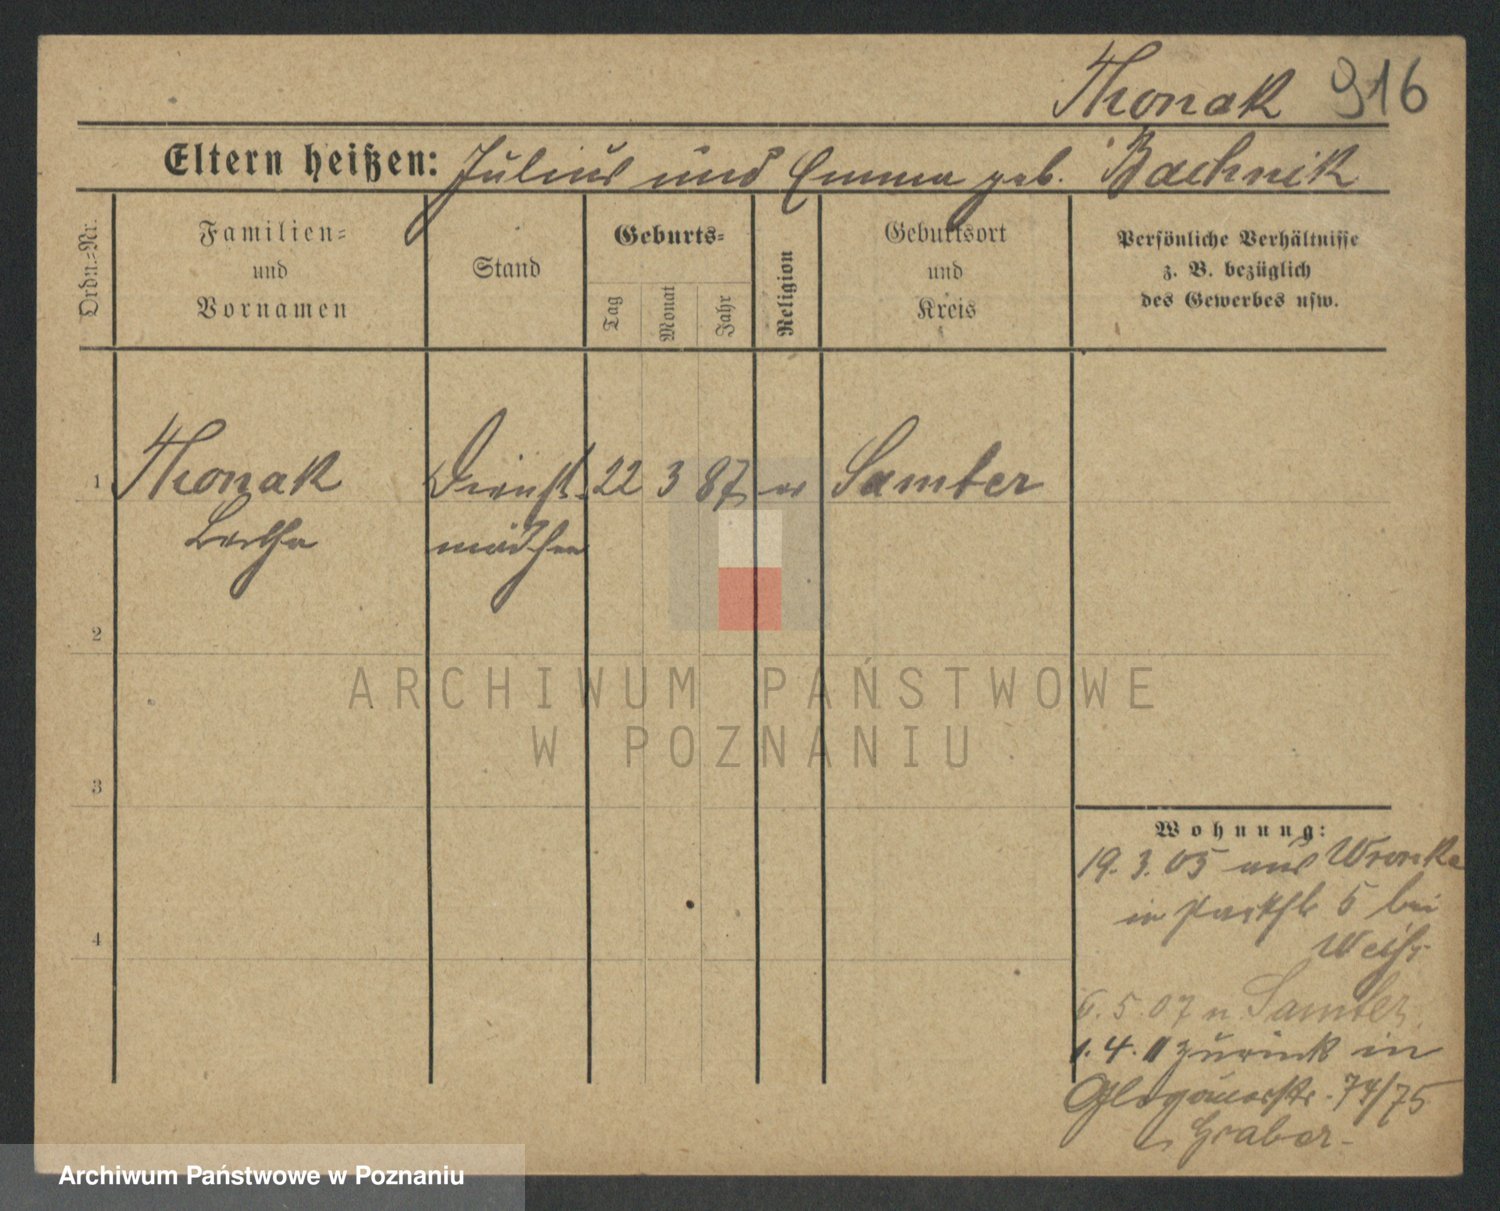 Thonak 916
Eltern heißen: Julius und Emma geb. Bachnik
Ordn.-Nr.
Familien-
und
Vornamen
Stand
Geburts-
Tag
Monat
Jahr
Religion
Geburtsort
und
Kreis
Persönliche Verhältnisse
z. B. bezüglich
des Gewerbes usw.
1 Thonak Dienst- 22 3 87 ev Samter
Bertha mädchen
2
3
4
Wohnung:
19. 3. 05 aus Wronke
in Parkstr 5 bei
Weiß
6. 5. 07 n Samter
1. 4. 11 zurück in
Glogauerstr. 74/75
Graber
ARCHIWUM PAŃSTWOWE
W POZNANIU
Archiwum Państwowe w Poznaniu